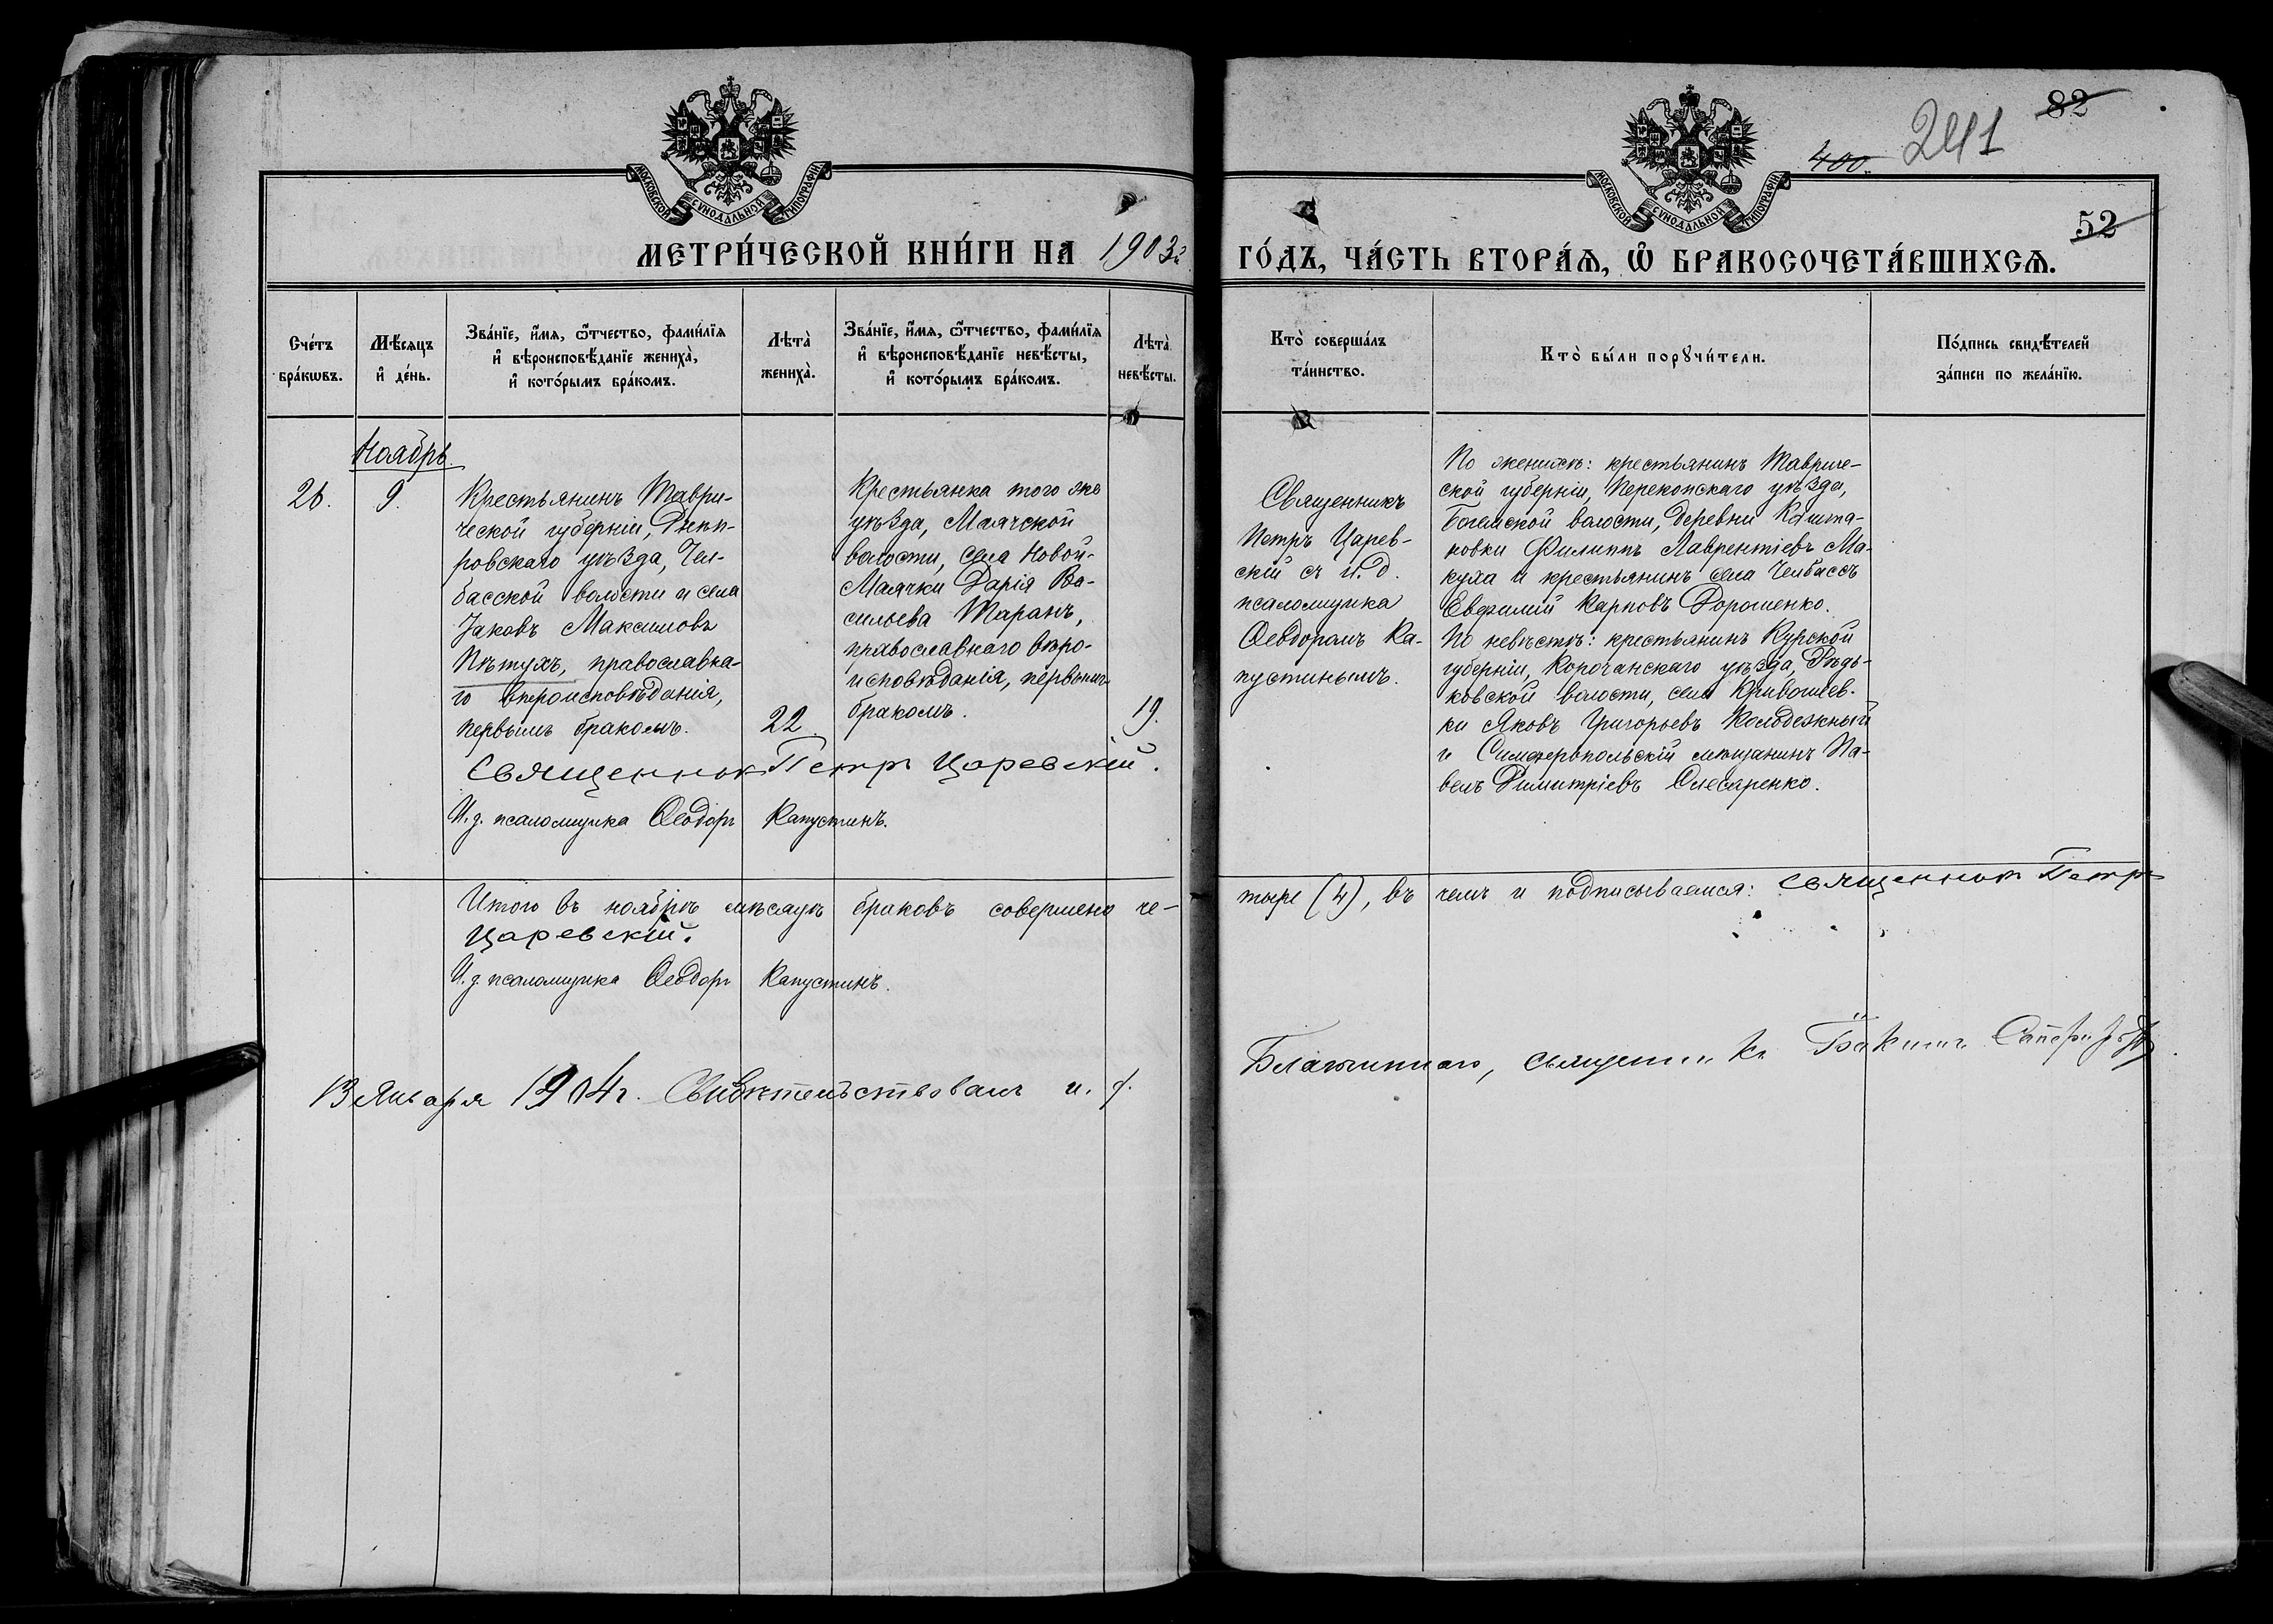 82
241
400.
52
МОСКОВСКОЙ СУНОДАЛЬНОЙ ТИПОГРАФІИ
МОСКОВСКОЙ СУНОДАЛЬНОЙ ТИПОГРАФІИ
МЕТРИ́ЧЕСКОЙ КНИ́ГИ НА 1903й
ГО́ДЪ, ЧА́СТЬ ВТОРА́Ѧ, Ѿ БРАКОСОЧЕТА́ВШИХСѦ.
Сче́тъ
бра́кѡвъ.
Мѣ́сѧцъ
и҆ де́нь.
Зва́нїе, и҆́мѧ, ѻ҆́тчество, фами́лїѧ
и҆ вѣроисповѣ́данїе жениха̀,
и҆ кото́рымъ бра́комъ.
Лѣта̀
жениха̀.
Зва́нїе, и҆́мѧ, ѻ҆́тчество, фами́лїѧ
и҆ вѣроисповѣ́данїе невѣ́сты,
и҆ кото́рымъ бра́комъ.
Лѣта̀
невѣ́сты.
Кто̀ соверша́лъ
та́инство.
Кто̀ бы́ли порꙋчи́тели.
По́дпись свидѣ́телей
за́писи по жела́нїю.
Ноябрь
26.
9.
Крестьянинъ Таври-
ческой губерніи, Днѣп-
ровскаго уѣзда, Чел-
басской волости и села
Іаковъ Максимовъ
Пѣтухъ, православна-
го вѣроисповѣданія,
первымъ бракомъ.
22.
Крестьянка того же
уѣзда, Маячской
волости, села Новой-
Маячки Дарія Ва-
сильева Таранъ,
православнаго вѣро-
исповѣданія, первымъ
бракомъ.
19.
Священникъ
Петръ Царев-
скій съ и. д.
псаломщика
Ѳеодоромъ Ка-
пустинымъ.
По женихѣ: крестьянинъ Тавриче-
ской губерніи, Перекопскаго уѣзда,
Богемской волости, деревни Кашта-
новки Филиппъ Лаврентіевъ Ма-
куха и крестьянинъ села Челбассъ
Евфимій Карповъ Дорошенко.
По невѣстѣ: крестьянинъ Курской
губерніи, Корочанскаго уѣзда,
ковской волости, села Кривошеев-
ки Яковъ Григорьевъ Колодежный
и Симферопольскій мѣщанинъ Па-
велъ Димитріевъ Слесаренко.
Священник Петръ Царевскій.
И. д. псаломщика Ѳеодоръ Капустинъ.
Итого въ ноябрѣ мѣсяцѣ браковъ совершено че-
тыре (4), въ чемъ и подписываемся: священник Петръ
Царевскій.
И. д. псаломщика Ѳеодоръ Капустинъ.
13 Января 1904 г. Свидѣтельствовалъ и. д.
Благочиннаго, священникъ